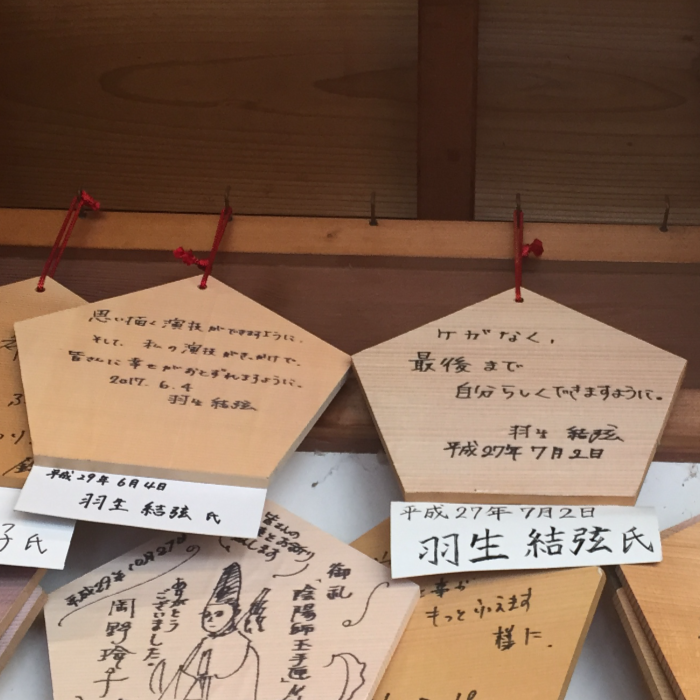 思い描く演技ができますように。
そして、私の演技がきっかけで、
皆さんに幸せがおとずれますように。
2017. 6. 4
羽生結弦
平成29年6月4日
羽生 結弦 氏
ケガなく、
最後まで
自分らしくできますように。
羽生 結弦
平成27年7月2日
平成27年7月2日
羽生 結弦 氏
子 氏
平成29年10月27日
岡野玲子
ありがとう
ございました。
御礼
「陰陽師玉手匣」
もっとふえます
様に。